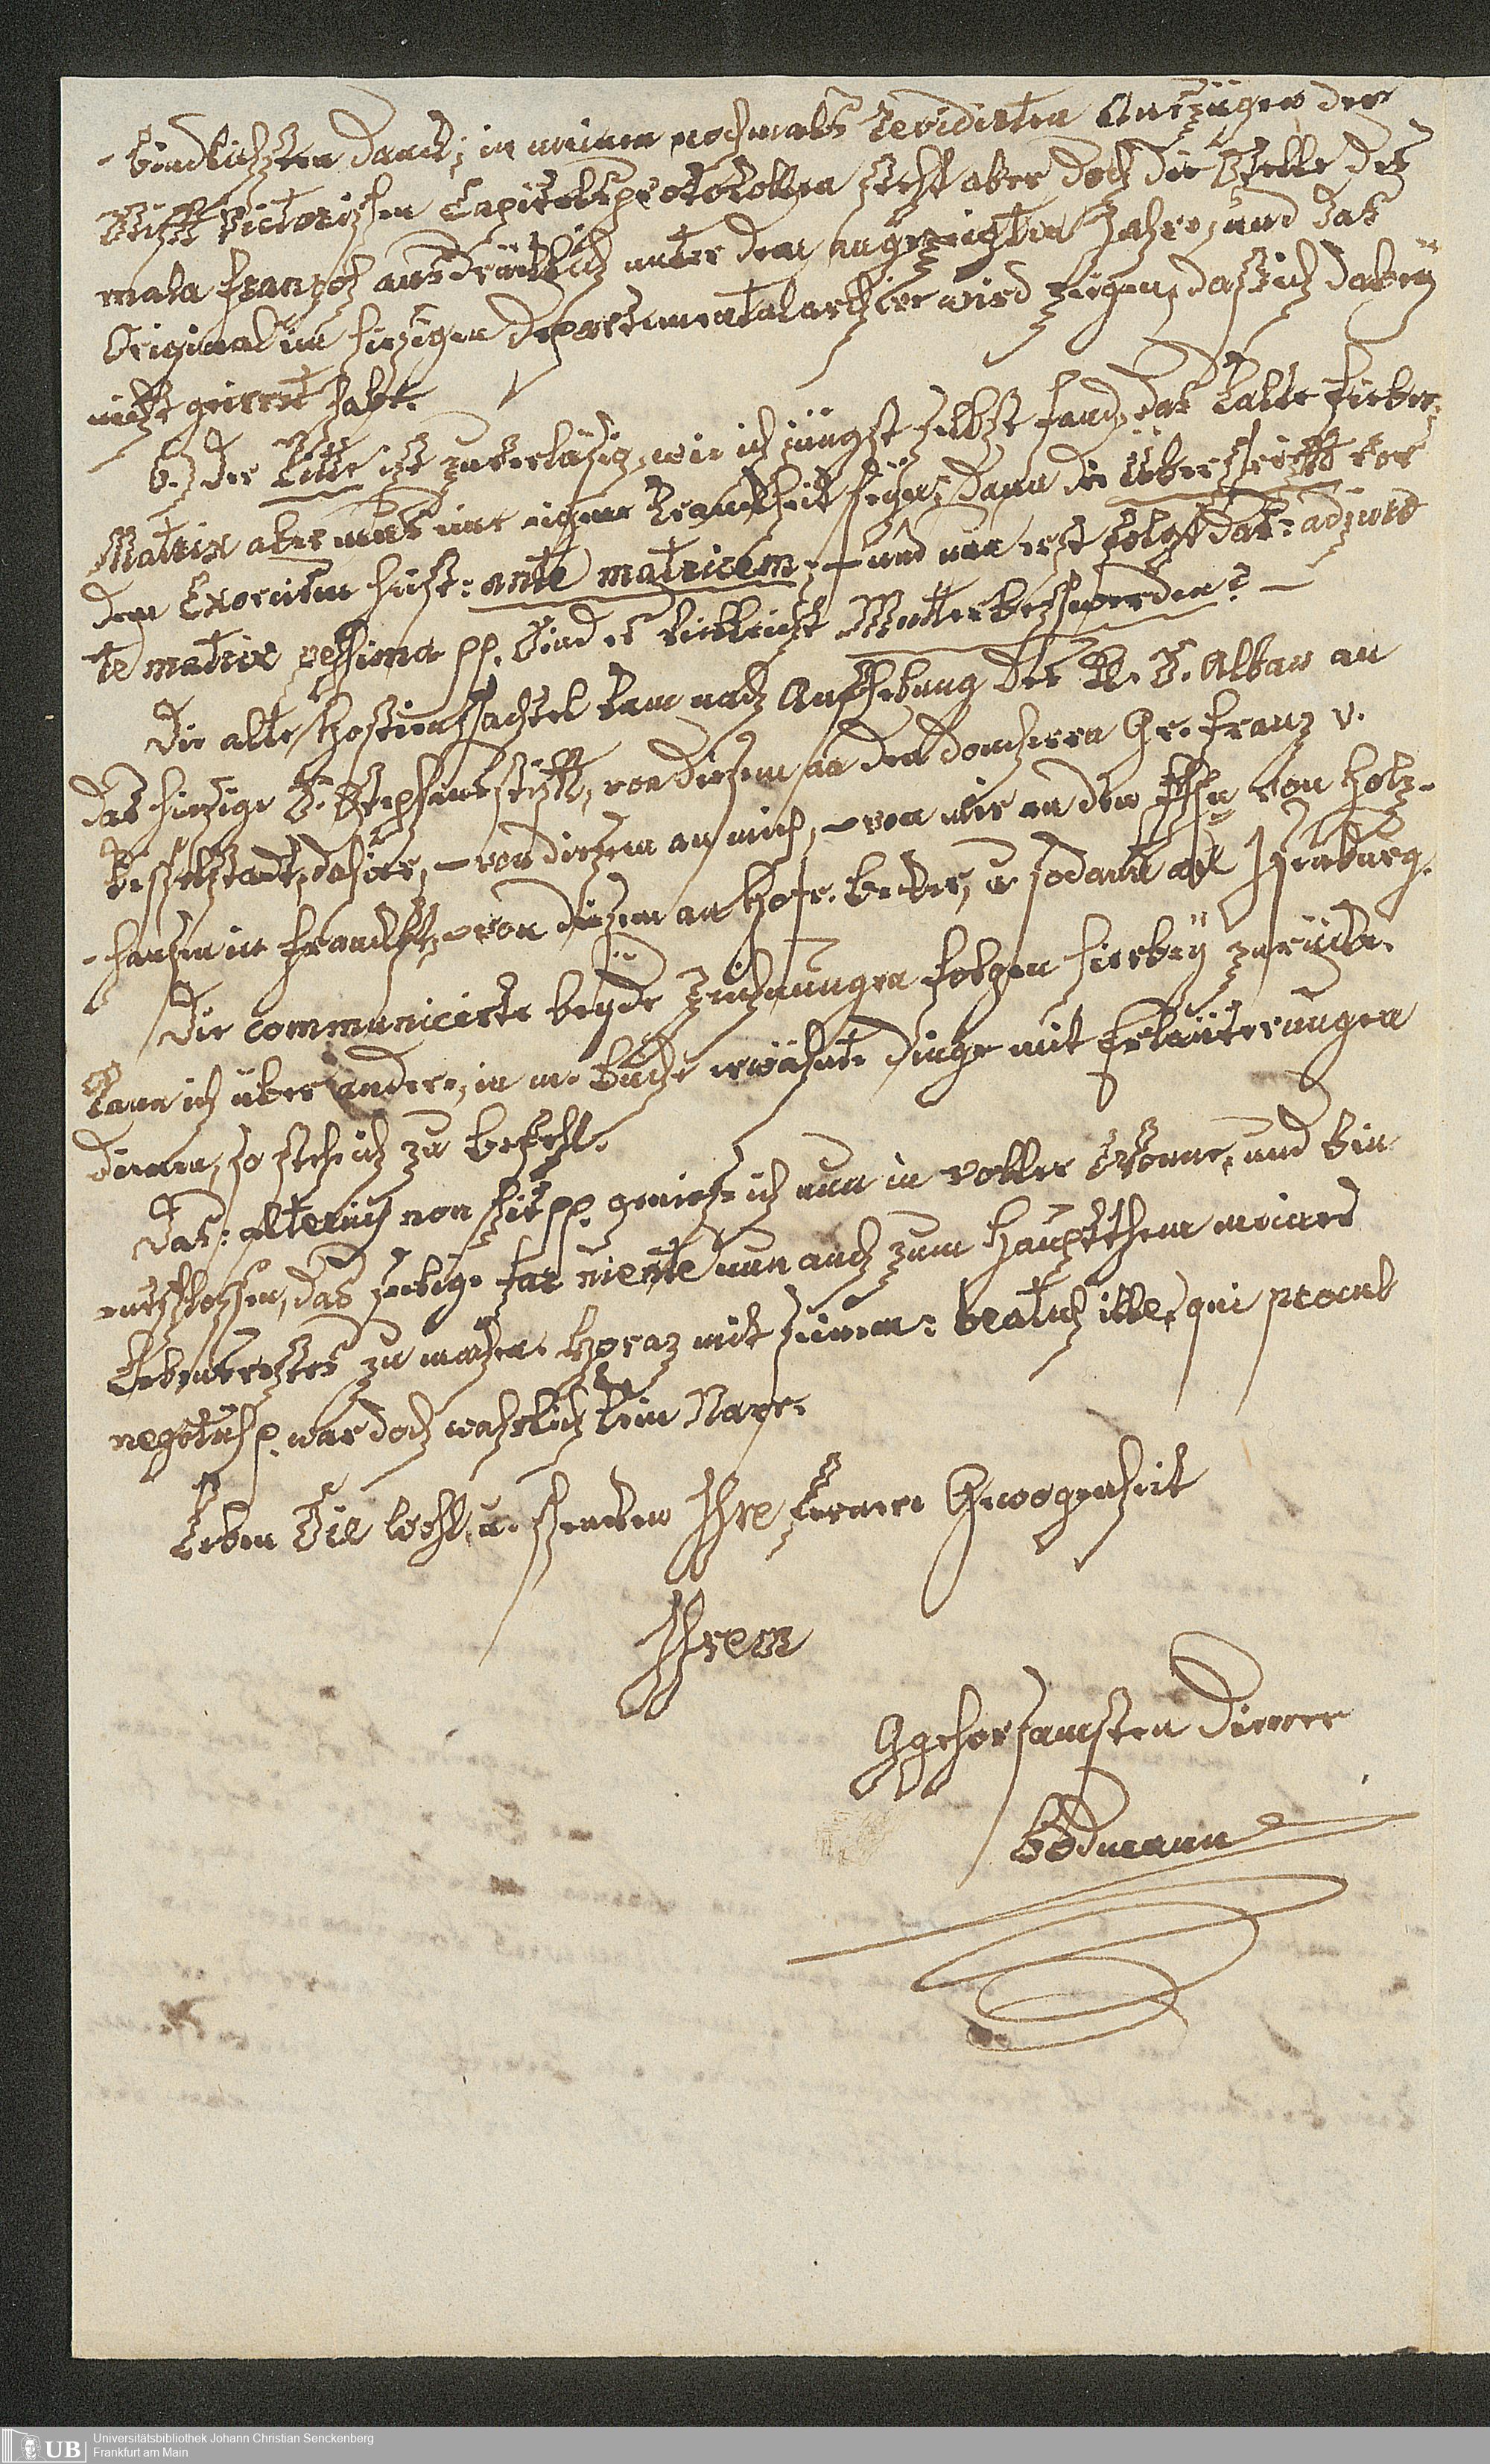 -bindlichsten Danck; in meinen nochmals revidirten Auszügen der
Stifft Victorischen Capitelsprotokollen steht aber doch die Stelle des
mala franzos ausdrücklich unter dem angezeigten Jahre, und das
Original im hiesigen Departementalarchive wird zeigen, daß ich dabey
nicht geirret habe.
6.) Der Ritte ist zuverläsig, wie ich jüngst selbst fand, das kalte Fieber;
Matrix aber muß eine eigene Kranckheit seyn; dann die Überschrifft vor
dem Exorcism heist: ante matricem; – und nun erst folgt das: adjuro
te matrix pessima pp. Sind es vielleicht Mutterbeschwerden? –
Die alte Hostienschachtel kam nach Aufhebung des Kl. S. Alban an
das hiesige S. Stephansstifft, von diesem an den Domherrn Gr. Franz v.
Kesselstadt, dahier, – von diesem an mich, – von mir an den Fhn von Holz-
-hausen in Franckft, – von diesem an Hofr. Becker, u. sodann an Isenburg.
Die communicirte beyde Zeichnungen folgen hierbey zurück.
Kann ich über andere, in m. Buche erwähnte Dinge mit Erläuterungen
dienen, so steh ich zu Befehl.
Das: alterius non sit pp. genieße ich nun in voller Wonne, und bin
entschlossen, das seelige far niente nun auch zum Hauptthema meines
Lebensrestes zu machen. Horaz mit seinem: beatus ille, qui procul
negotiis p. war doch wahrlich kein Narr.
Leben Sie wohl, u. schencken Ihre fernere Gewogenheit
Ihrem
Ggehorsamsten Diener
Bodmann
UB
Universitätsbibliothek Johann Christian Senckenberg
Frankfurt am Main